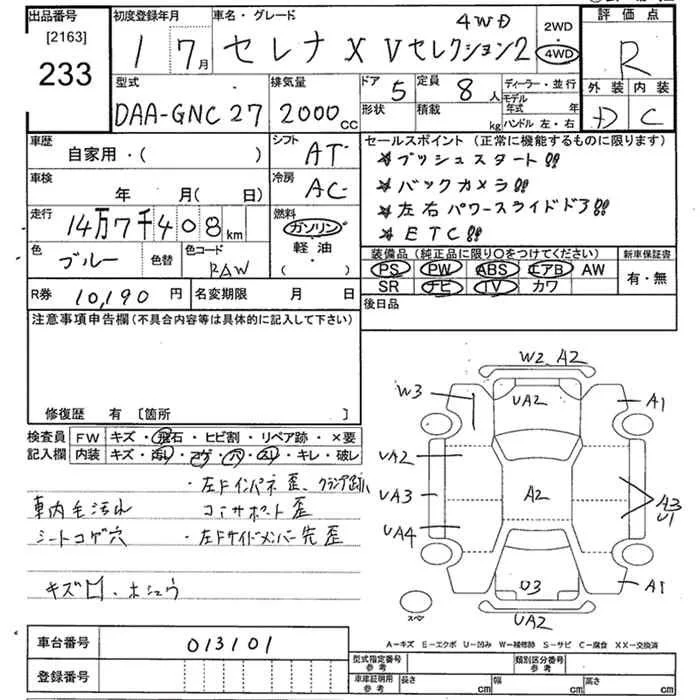 出品番号
[2163]
233
初度登録年月
1 7月
車名・グレード
4WD
セレナ X Vセレクション2
2WD
・
4WD
評価点
R
外装 内装
D C
型式
DAA-GNC27
排気量
2000cc
ドア 5
形状
定員 8人
積載 kg
ディーラー・並行
モデル年式 年
ハンドル 左・右
車歴
自家用・( )
シフト
AT
車検
年 月( 日)
冷房
AC
走行
14万7千408km
燃料
ガソリン
軽油
( )
色
ブルー
色替
色コード
RAW
R券 10,190円
名変期限 月 日
セールスポイント(正常に機能するものに限ります)
★プッシュスタート!!
★バックカメラ!!
★左右パワースライドドア!!
★ETC!!
装備品(純正品に限り○をつけてください)
PS PW ABS エアB AW
SR ナビ TV カワ
新車保証書
有・無
後日品
注意事項申告欄(不具合内容等は具体的に記入して下さい)
修復歴 有 [箇所 ]
検査員記入欄
FW キズ・飛石・ヒビ割・リペア跡・×要
内装 キズ・汚レ・コゲ・穴・スレ・キレ・破レ
・左Fインパネ歪、クランプ跡
車内毛汚れ
コアサポート歪
シートコゲ穴
・左Fサイドメンバー先歪
キズ凹・ホシュウ
W2 A2
W3
UA2
A1
UA2
UA3
A2
A3
U1
UA4
U3
A1
UA2
スペア
A-キズ E-エクボ U-凹み W-補修跡 S-サビ C-腐食 XX-交換済
車台番号
013101
登録番号
型式指定番号
参考
類別区分番号
参考
車庫証明用
参考
長さ cm
幅 cm
高さ cm